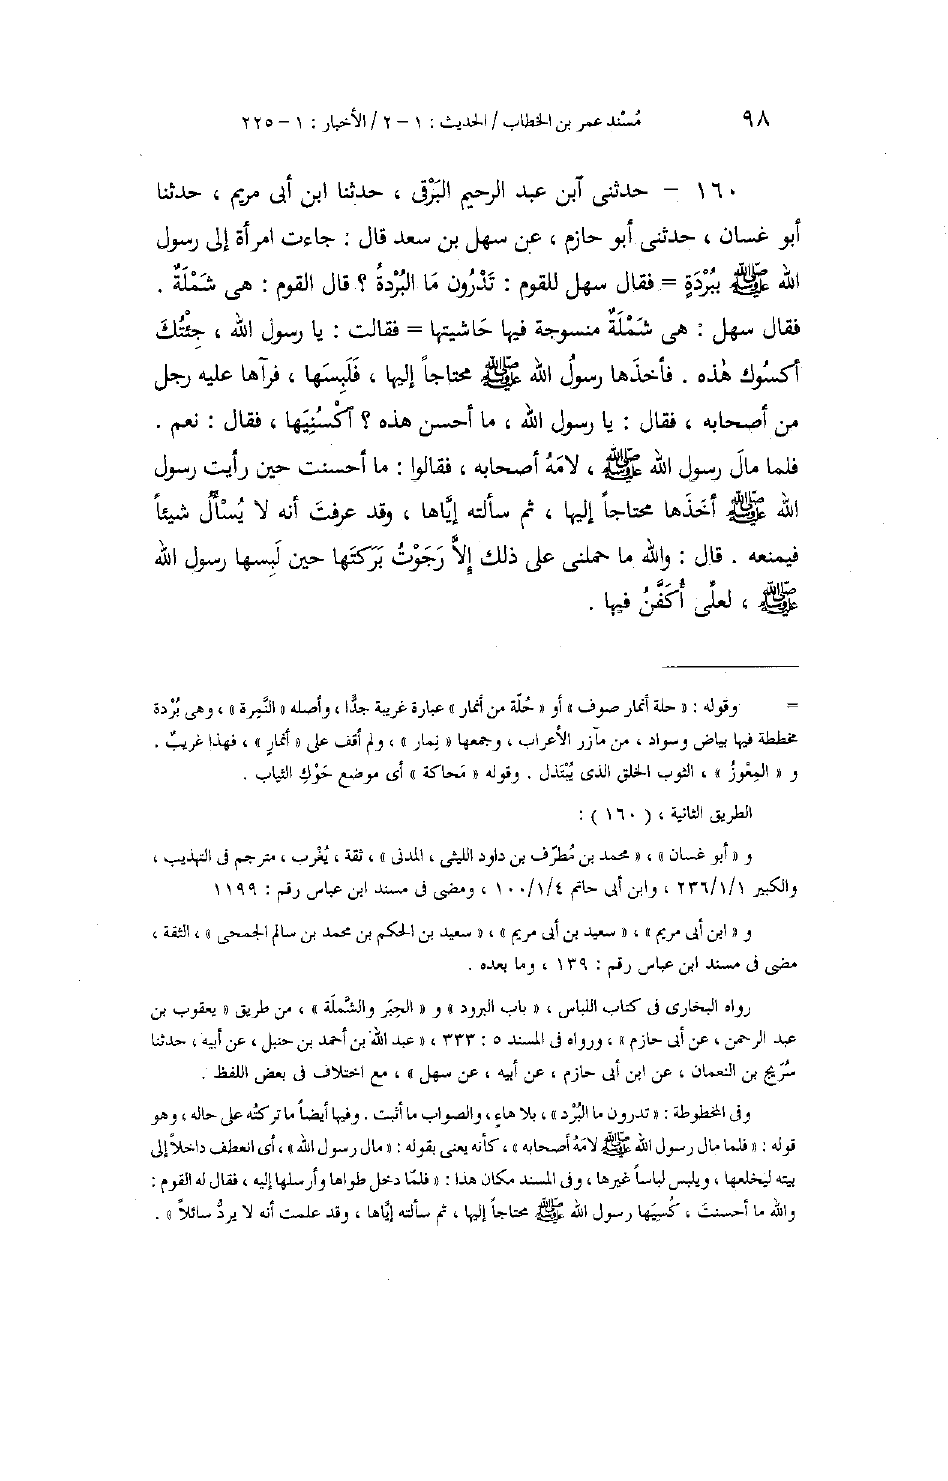 ٩٨ مُسْند عمر بن الخطاب / الحديث : ١ – ٢ / الأخبار : ١ – ٢٢٥
١٦٠ – حدثنى آبن عبد الرحيم البَرْقى ، حدثنا ابن أبى مريم ، حدثنا
أبو غسان ، حدثنى أبو حازم ، عن سهل بن سعد قال : جاءت امرأة إلى رسول
الله ﷺ بِبُرْدَةٍ = فقال سهل للقوم : تَدْرُون مَا البُرْدةُ ؟ قال القوم : هى شَمْلَةٌ .
فقال سهل : هى شَمْلَةٌ منسوجة فيها حَاشيتها = فقالت : يا رسول الله ، جِئْتُكَ
أكسُوك هٰذه . فأخذَها رسولُ الله ﷺ محتاجاً إليها ، فَلَبِسَها ، فرآها عليه رجل
من أصحابه ، فقال : يا رسول الله ، ما أحسن هذه ؟ آكْسُنِيَها ، فقال : نعم .
فلما مالَ رسول الله ﷺ ، لامَهُ أصحابه ، فقالوا : ما أحسنت حين رأيت رسول
الله ﷺ أخذَها محتاجاً إليها ، ثم سألته إيَّاها ، وقد عرفتَ أنه لا يُسْأَلُ شيئاً
فيمنعه . قال : والله ما حملنى على ذلك إلاَّ رَجَوْتُ بَرَكتَها حين لَبِسها رسول الله
ﷺ ، لعلِّى أُكَفَّنُ فيها .
= وقوله : « حلة أنمار صوف » أو « حُلّة من أنمار » عبارة غريبة جدًّا ، وأصله « النَّمِرة » ، وهى بُرْدة
مخططة فيها بياض وسواد ، من مآزر الأعراب ، وجمعها « نِمار » ، ولم أقف على « أنمارٍ » ، فهذا غريبٌ .
و « المِعْوزُ » ، الثوب الخلق الذى يُبْتَذل . وقوله « مَحاكة » أى موضع حَوْكِ الثياب .
الطريق الثانية ، ( ١٦٠ ) :
و « أبو غسان » ، « محمد بن مُطرّف بن داود الليثى ، المدنى » ، ثقة ، يُغْرب ، مترجم فى التهذيب ،
والكبير ٢٣٦/١/١ ، وابن أبى حاتم ١٠٠/١/٤ ، ومضى فى مسند ابن عباس رقم : ١١٩٩
و « ابن أبى مريم » ، « سعيد بن أبى مريم » ، « سعيد بن الحكم بن محمد بن سالم الجمحى » ، الثقة ،
مضى فى مسند ابن عباس رقم : ١٣٩ ، وما بعده .
رواه البخارى فى كتاب اللباس ، « باب البرود » و « الحِبَر والشَّملَة » ، من طريق « يعقوب بن
عبد الرحمن ، عن أبى حازم » ، ورواه فى المسند ٥ : ٣٣٣ ، « عبد الله بن أحمد بن حنبل ، عن أبيه ، حدثنا
سُرَيج بن النعمان ، عن ابن أبى حازم ، عن أبيه ، عن سهل » ، مع اختلاف فى بعض اللفظ .
وفى المخطوطة : « تدرون ما البُرْد » ، بلا هاءٍ ، والصواب ما أثبت . وفيها أيضاً ما تركتُه على حاله ، وهو
قوله : « فلما مال رسول الله ﷺ لامَهُ أصحابه » ، كأنه يعنى بقوله : « مال رسول الله » ، أى انعطف داخلاً إلى
بيته ليخلعها ، ويلبس لباساً غيرها ، وفى المسند مكان هذا : « فلمّا دخل طواها وأرسلها إليه ، فقال له القوم :
والله ما أحسنتَ ، كُسِيَها رسول الله ﷺ محتاجاً إليها ، ثم سألته إيَّاها ، وقد علمت أنه لا يردُّ سائلاً » .